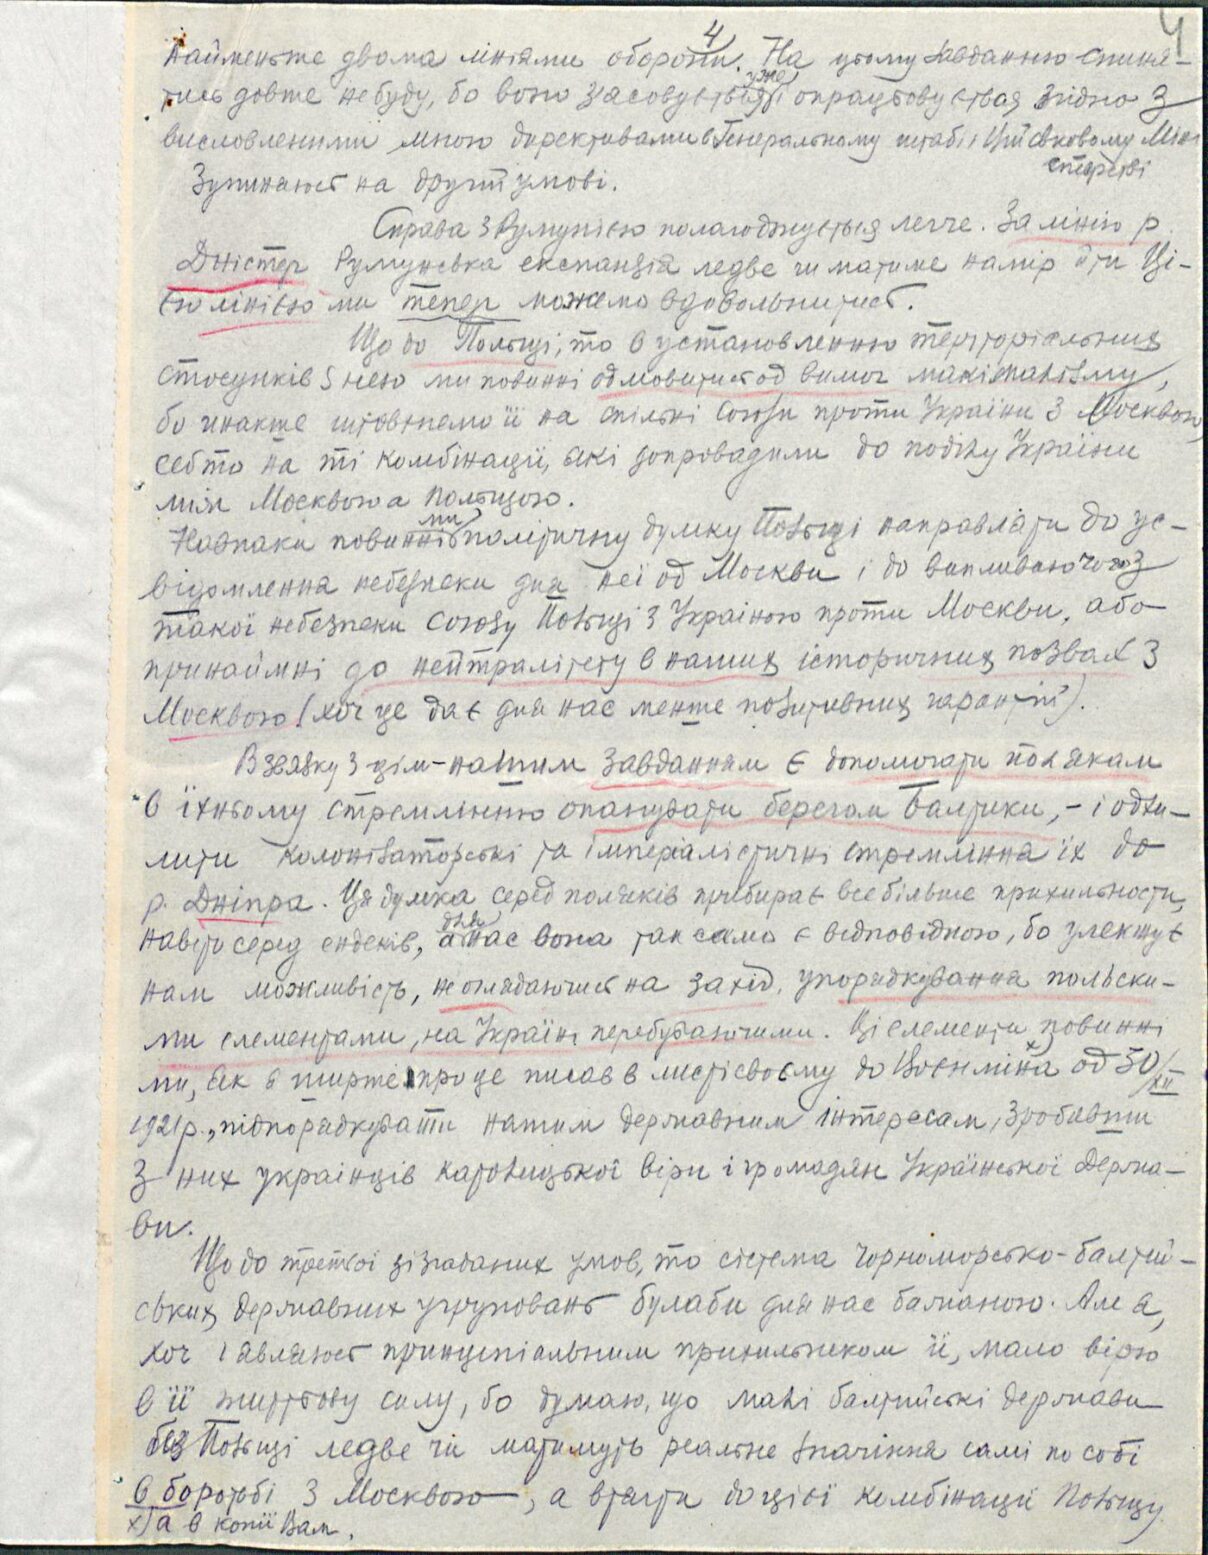 4
4
найменьше двома лініями оборони. На цьому завданню спиня-
тись довше не буду, бо воно засовується уже і опрацьовується згідно з
висловленими мною дорективами в Генеральному штабі і Військовому Міні
стерстві
Зупиняюсь на другій умові.
Справа з Румунією полагоджується легче. За лінію р.
Дністер Румунська експанція ледве чи матиме намір йти. Ці-
єю лінією ми тепер можемо вдовольнитись.
Що до Польщі, то в установленню теріторіяльних
стосунків з нею ми повинні одмовитись од вимог максімалізму,
бо инакше штовхнемо її на спільні союзи проти України з Москвою,
себто на ті комбінації, які допровадили до поділу України
між Москвою а Польщою.
Навпаки повинні ми політичну думку Польщі направляти до ус-
відомлення небезпеки для неї од Москви і до випливаючого з
такої небезпеки союзу Польщі з Україною проти Москви, або
принаймні до нейтралітету в наших історичних позвах з
Москвою (хоч це дає для нас менше позитивних гарантій).
В звязку з цім – нашим завданням є допомогати полякам
в їхньому стремлінню опанувати берегом Балтики, – і одхи-
лити колонізаторські та імперіалістичні стремління їх до
р. Дніпра. Ця думка серед поляків прибирає все більше прихильности,
навіть серед ендеків, а для нас вона так само є відповідною, бо улекшує
нам можливість, не оглядаючись на захід, упорядкування польски-
ми елементами, на Україні перебуваючими. Ці елементи повинні
ми, як я ширше про це писав в листі своєму до Воєнміна x) од 30/XII
1921 р., підпорядкувати нашим державним інтересам, зробивши
з них українців католицької віри і громадян Української Держа-
ви.
Що до третьої зі згаданих умов, то сістема чорноморсько-балтій-
ських державних угруповань булаби для нас бажаною. Але я,
хоч і являюсь принціпіальним прихильником її, мало вірю
в її життьову силу, бо думаю, що малі балтийські держави
без Польщі ледве чи матимуть реальне значіння самі по собі
в боротьбі з Москвою, а втягти до цієї комбінації Польщу
x) а в копії Вам.